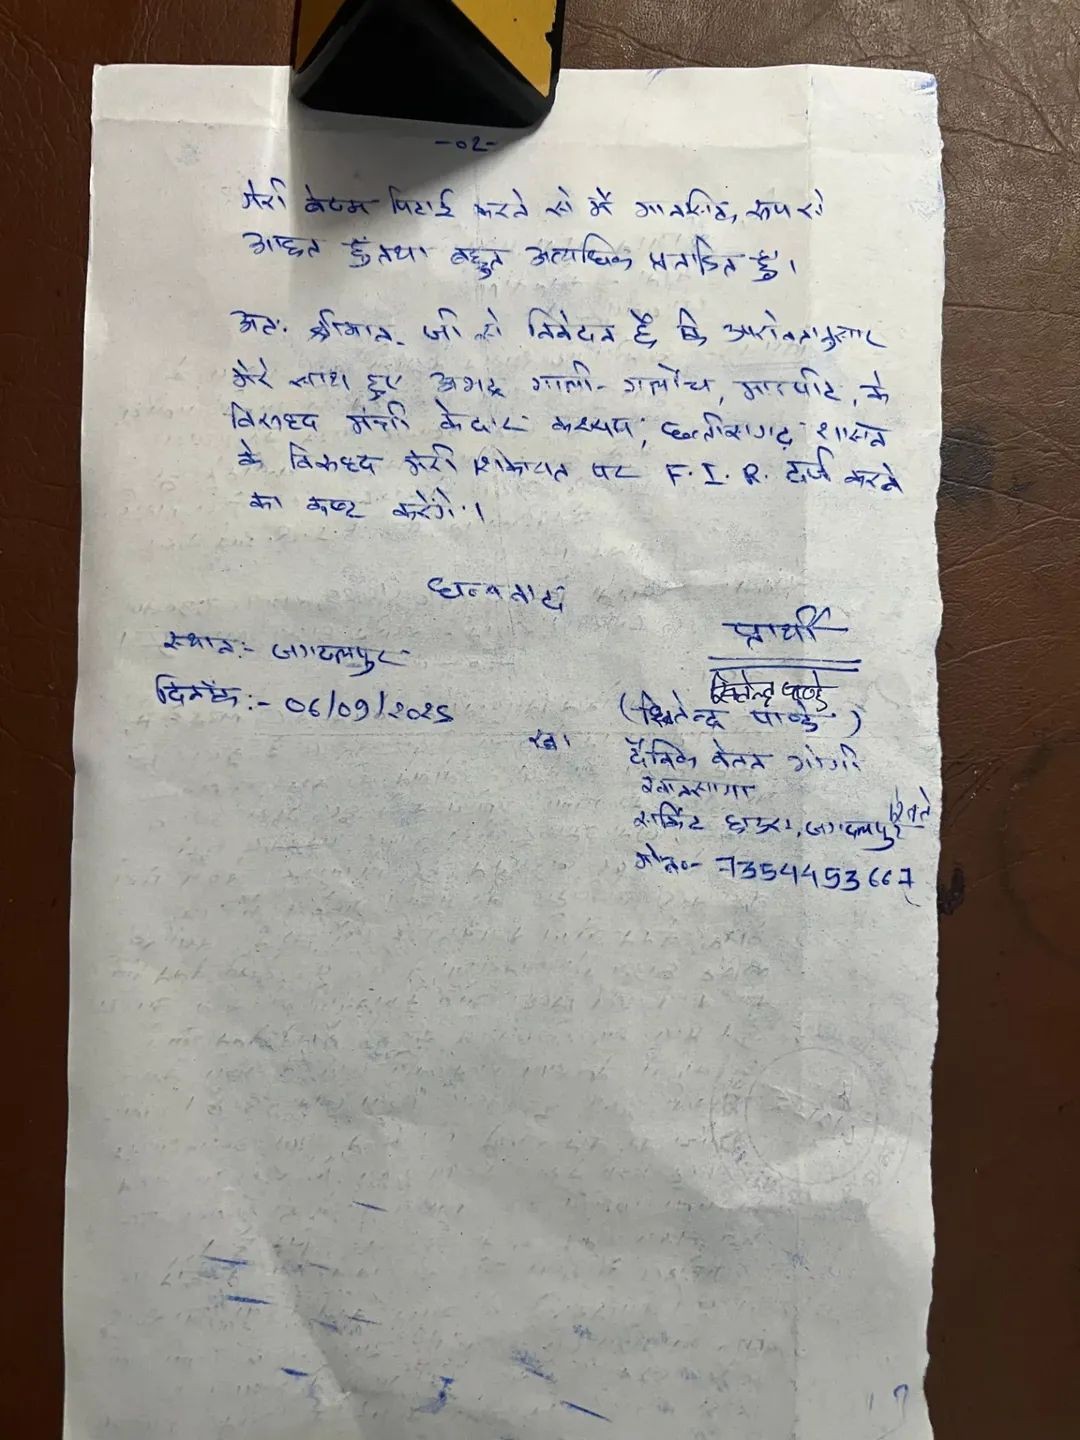 -02-
मेरी बेदम पिटाई करने से मैं मानसिक रूप से
आहत हुँ तथा बहुत अत्याधिक प्रताडित हुँ।
अतः श्रीमान जी से निवेदन है कि आरोपानुसार
मेरे साथ हुए अभद्र गाली-गलौच, मारपीट, के
विरूध्द मंत्री केदार कश्यप, छत्तीसगढ़ शासन
के विरूध्द मेरी शिकायत पर F.I.R. दर्ज करने
का कष्ट करेंगे।
धन्यवाद
प्रार्थी
स्थान:- जगदलपुर
दिनाँक:- 06/09/2025
(खितेन्द्र पाण्डे)
दैनिक वेतन भोगी
खानसामा
सर्किट हाउस, जगदलपुर
मो.नं०- 7354453667